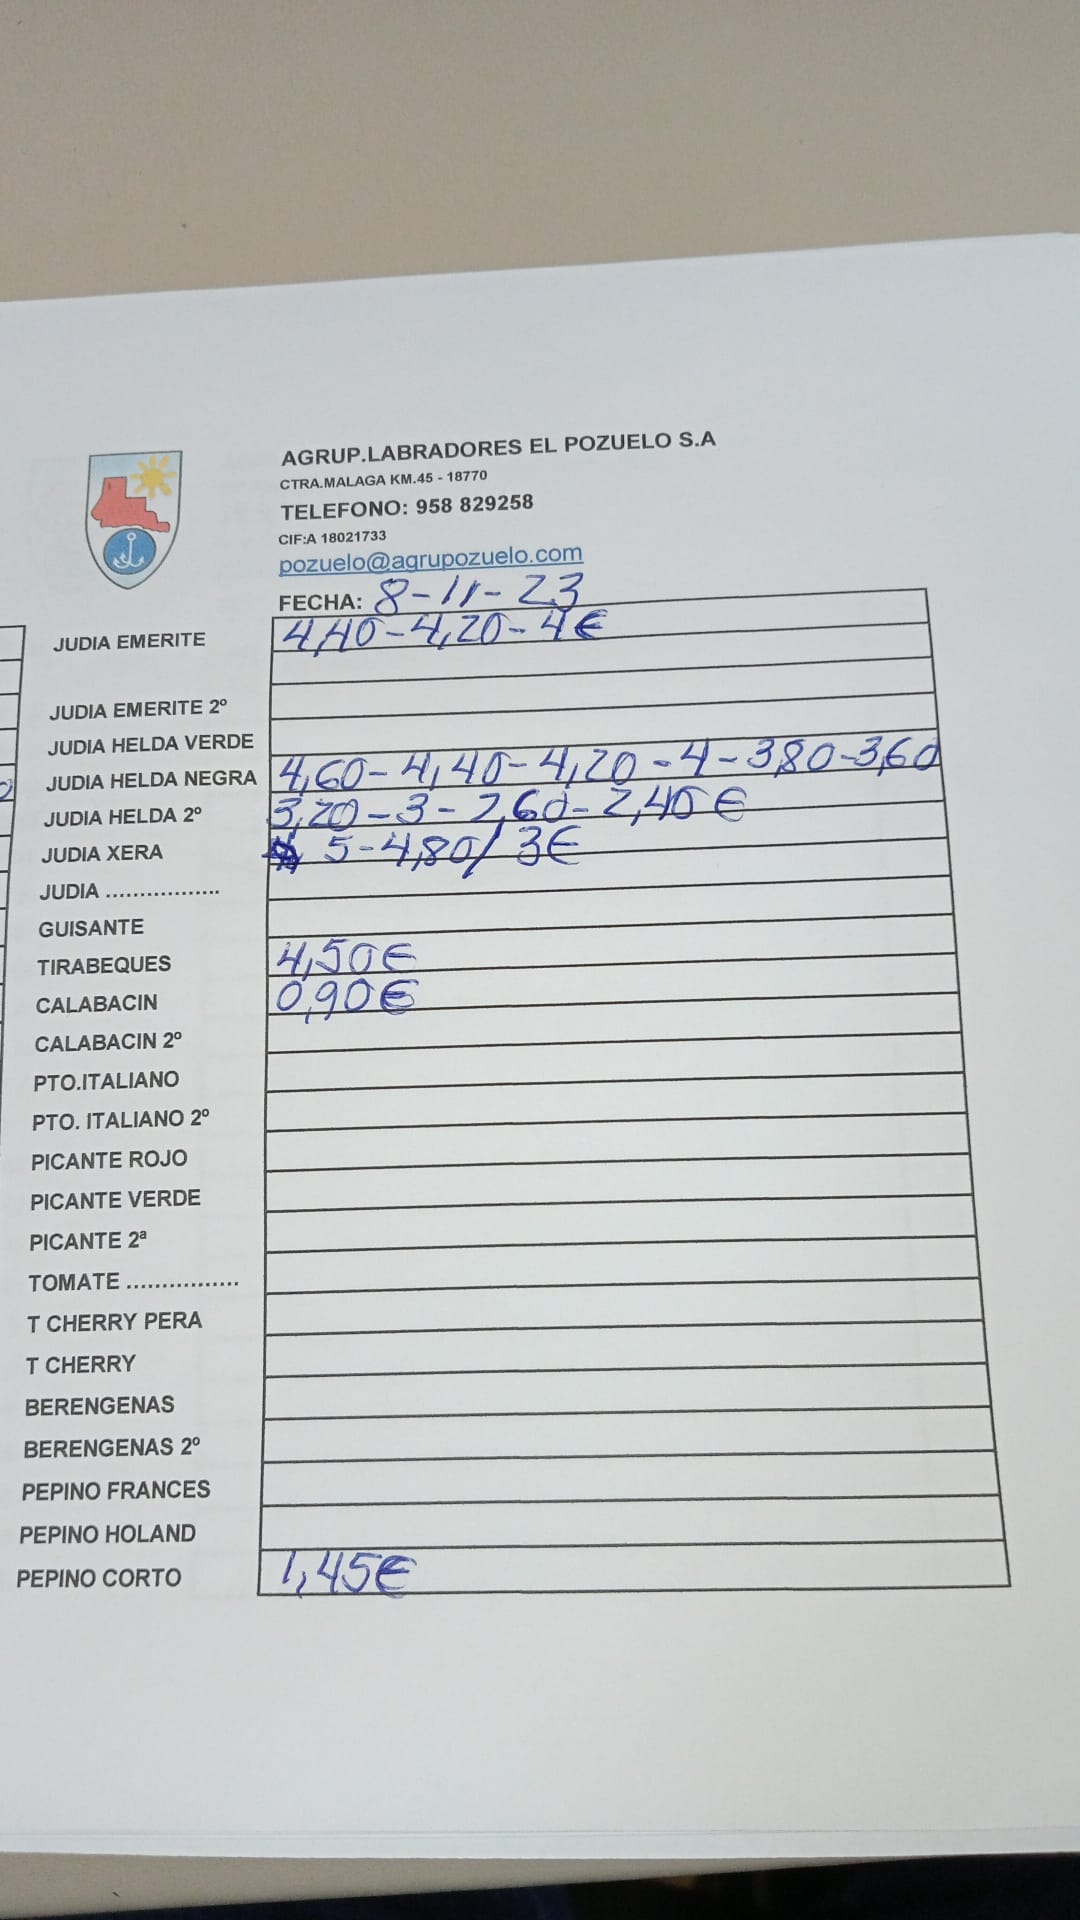 AGRUP.LABRADORES EL POZUELO S.A
CTRA.MALAGA KM.45 - 18770
TELEFONO: 958 829258
CIF:A 18021733
pozuelo@agrupozuelo.com
FECHA: 8-11-23
JUDIA EMERITE 4,40-4,20-4€
JUDIA EMERITE 2º
JUDIA HELDA VERDE
JUDIA HELDA NEGRA 4,60-4,40-4,20-4-3,80-3,60
JUDIA HELDA 2º 3,20-3-2,60-2,40€
JUDIA XERA 5-4,80/3€
JUDIA .................
GUISANTE
TIRABEQUES 4,50€
CALABACIN 0,90€
CALABACIN 2º
PTO.ITALIANO
PTO. ITALIANO 2º
PICANTE ROJO
PICANTE VERDE
PICANTE 2ª
TOMATE ................
T CHERRY PERA
T CHERRY
BERENGENAS
BERENGENAS 2º
PEPINO FRANCES
PEPINO HOLAND
PEPINO CORTO 1,45€